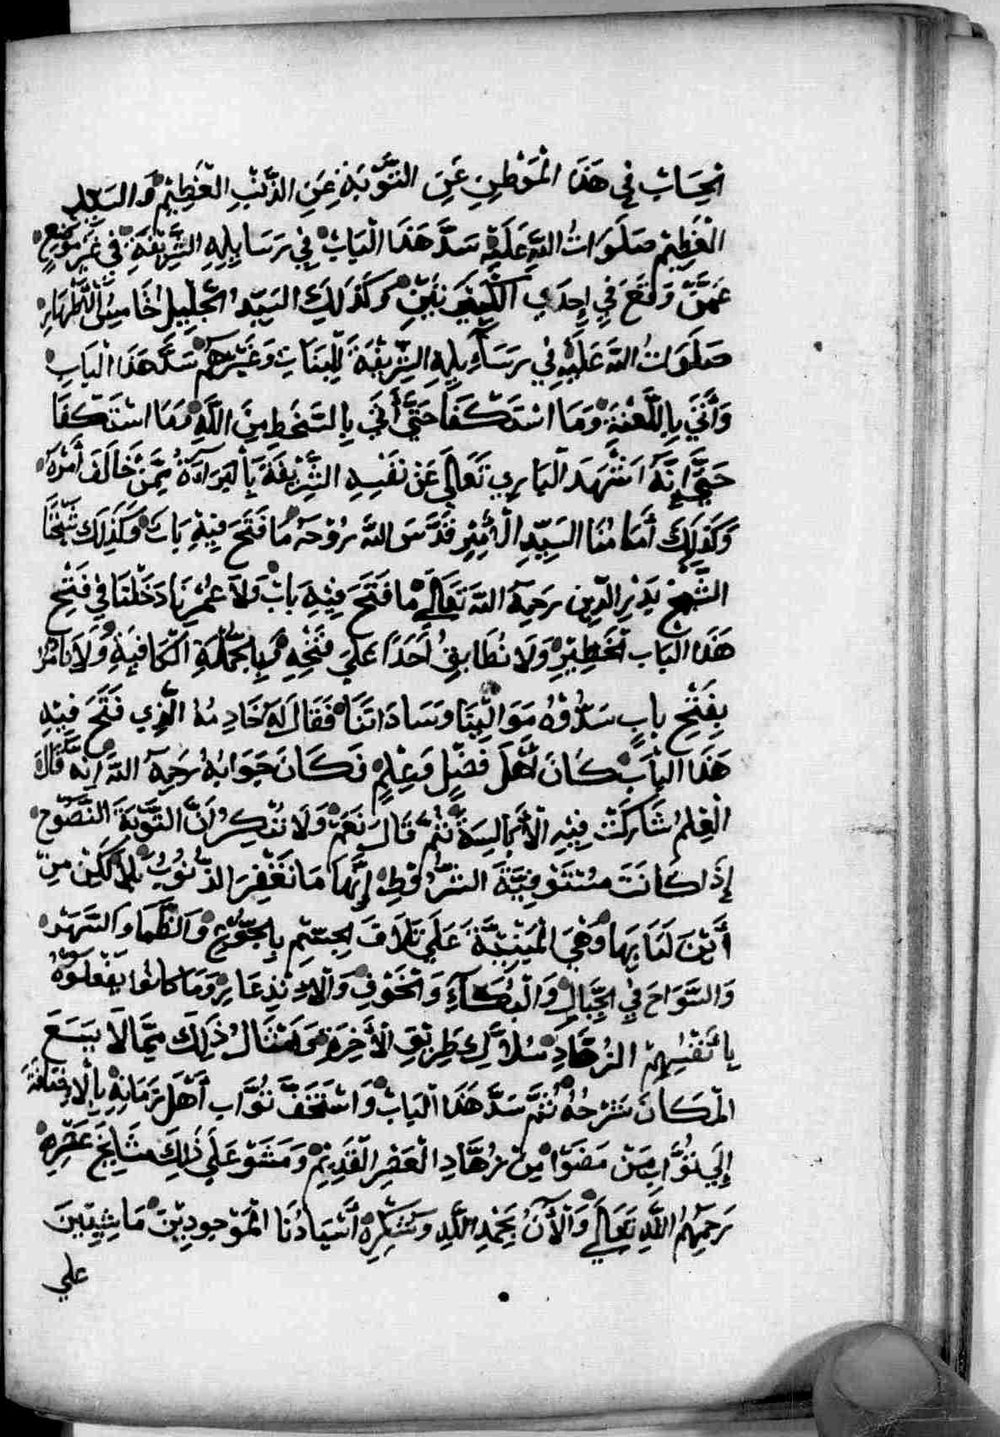 انحساب في هذا الموطن عن التوبة عن الذنب العظيم والسيد
العظيم صلوات الله عليه سد هذا الباب في رسايله الشريفة في غير موضع
عمّن وقع في إحدي الكبيرتين وكذلك السيد الجليل خامس الاطهار
صلوات الله عليه في رسأيله الشريفة للبنات وغيرهم سد هذا الباب
وأني باللعنة وما استكفا حتى أتي بالسخط من الله وما استكفا
حتي إنه اشهد الباري تعالي عن نفسه الشريفة بالبرآة ممّن خالف أمره
وكذلك أمامنا السيد الامير قدس الله روحه ما فتح فيه باب وكذلك شيخنا
الشيخ بدر الدين رحمه الله تعالي ما فتح فيه باب ولا عمرنا دخلنا في فتح
هذا الباب الخطير ولا نطابق أحدًا علي فتحه وبالجملة الكافية ولا نامر
بفتح باب سدّوه موالينا وساداتنا فقال له خادمه الذي فتح فيه
هذا الباب كان أهل فضل وعلم فكان جوابه رحمه الله انه قال
العلم شاركت فيه الأبالسة ثم قال نعم ولا ننكر ان التوبة النصوح
إذا كانت مستوفية الشروط إنها ما تغفر الذنوب بلا لكن من
أين لنا بها وهي المبنية علي تلاف الجسم بالجوع والظما والسهر
والسواح في الجبال والبكاء والخوف والاذدعار وما كانوا يفعلوه
بانفسهم الزهاد سلاك طريق الأخرة وامثال ذلك ممّا لا يسع
المكان شرحه ثم سد هذا الباب واستخف ثواب أهل زمانه بالاضافة
إلي ثواب من مضوا من زهاد العصر القديم ومشو علي ذلك مشايخ عصره
رحمهم الله تعالي والآن بحمد الله وشكره أسيادنا الموجودين ماشيين
علي